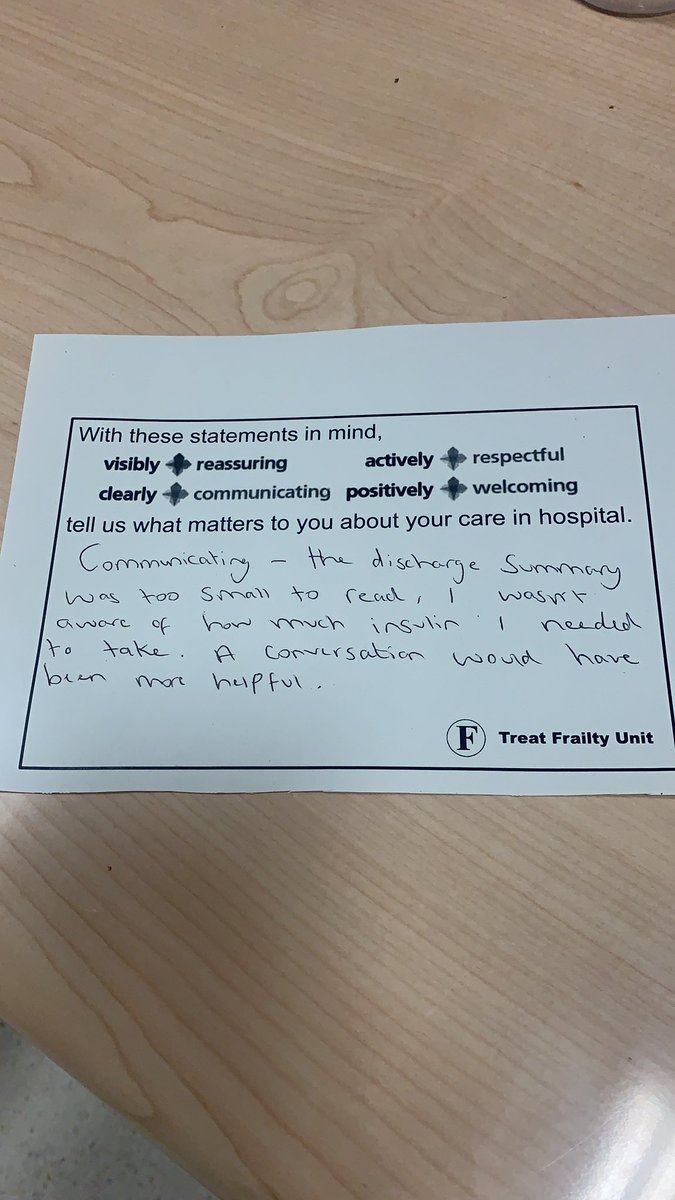 With these statements in mind,
visibly reassuring actively respectful
clearly communicating positively welcoming
tell us what matters to you about your care in hospital.
Communicating - the discharge summary
was too small to read, I wasn't
aware of how much insulin I needed
to take. A conversation would have
been more helpful.
F Treat Frailty Unit